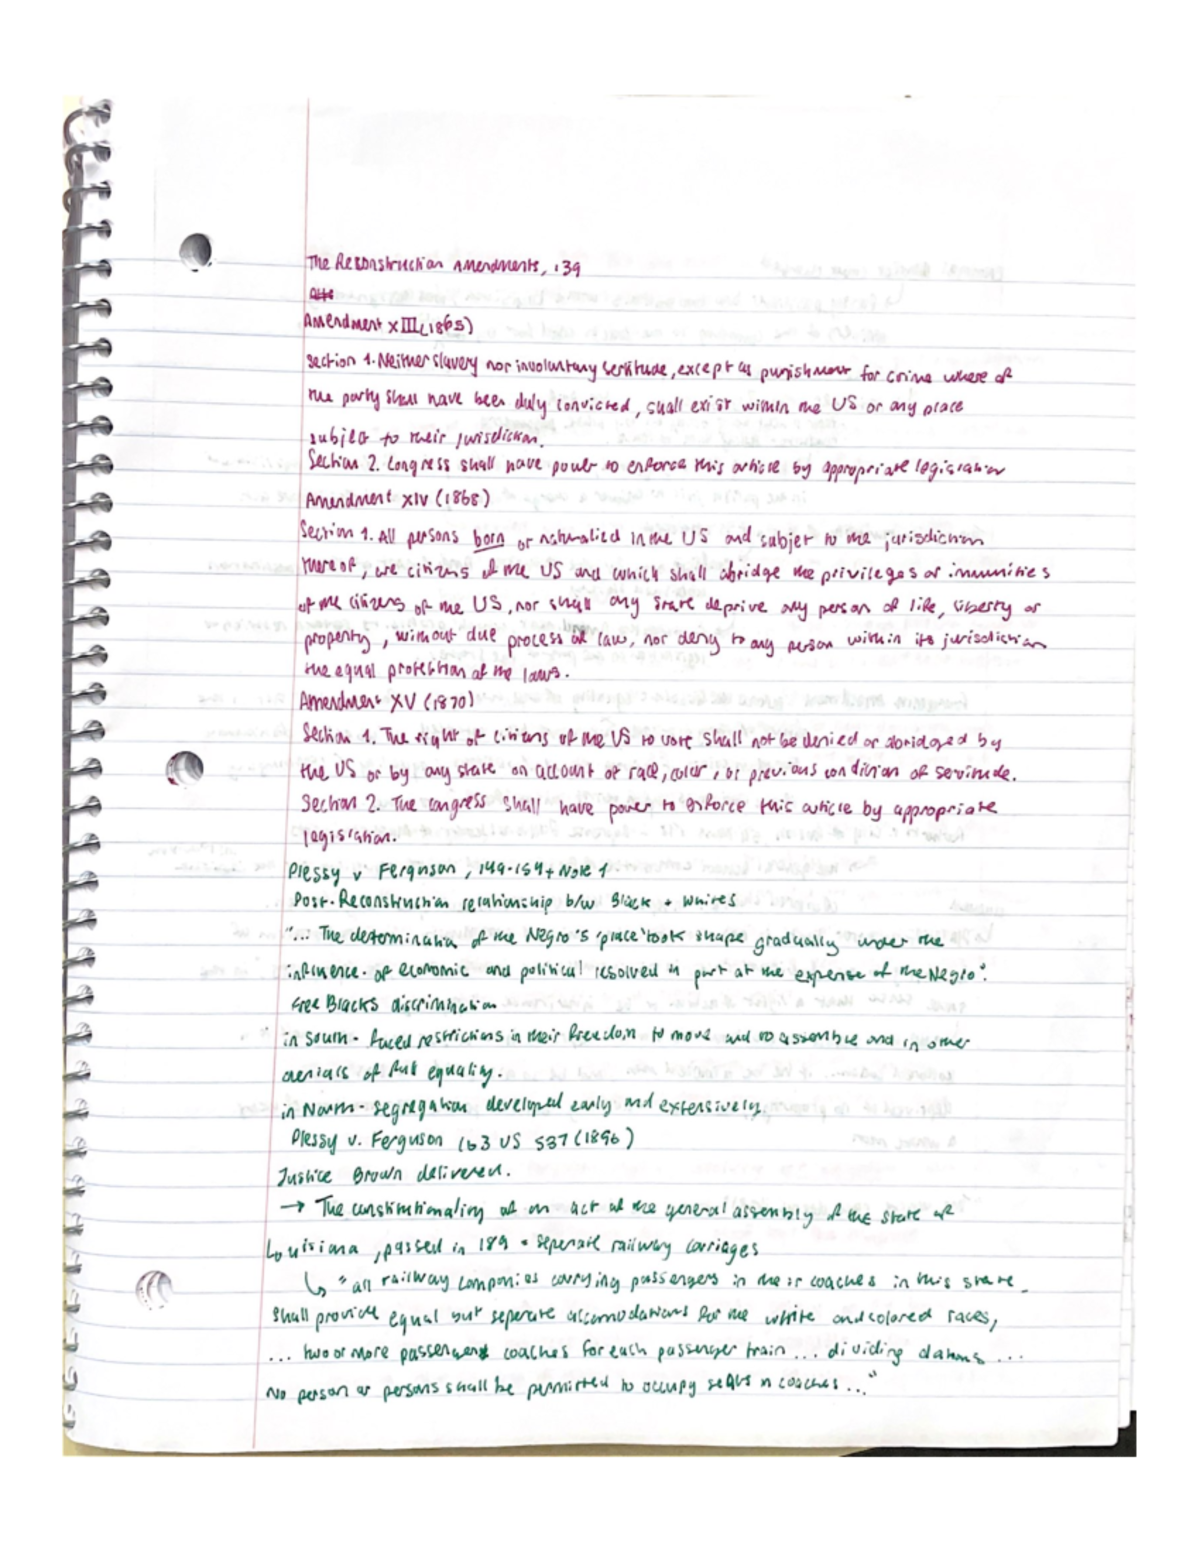 The Reconstruction Amendments, 139
Amendment XIII (1865)
Section 1. Neither slavery nor involuntary servitude, except as punishment for crime where of
the party shall have been duly convicted, shall exist within the US or any place
subject to their jurisdiction.
Section 2. Congress shall have power to enforce this article by appropriate legislation
Amendment XIV (1868)
Section 1. All persons born or naturalized in the US and subjet to the jurisdiction
there of, are citizens of the US and which shall abridge the privileges or immunities
of the citizens of the US, nor shall any state deprive any person of life, liberty or
property, without due process of law, nor deny to any person within its jurisdiction
the equal protection of the laws.
Amendment XV (1870)
Section 1. The right of citizens of the US to vote shall not be denied or abridged by
the US or by any state on account of race, color, or previous condition of servitude.
Section 2. The congress shall have power to enforce this article by appropriate
legislation.
Plessy v Ferguson, 149-154 + Note 1
Post-Reconstruction relationship b/w Black + Whites
"... The determination of the Negro's 'place' took shape gradually under the
influence of economic and political resolved in part at the expense of the Negro".
Free Blacks discrimination
in South - faced restrictions in their freedom to move and to assemble and in other
denials of full equality.
in North - segregation developed early and extensively.
Plessy v. Ferguson 163 US 537 (1896)
Justice Brown delivered.
→ The constitutionality of an act of the general assembly of the state of
Louisiana, passed in 189 = seperate railway carriages
↳ "all railway companies carrying passengers in their coaches in this state
shall provide equal but seperate accomodations for the white and colored races,
... two or more passenger coaches for each passenger train ... dividing ...
No person or persons shall be permitted to occupy seats in coaches ..."